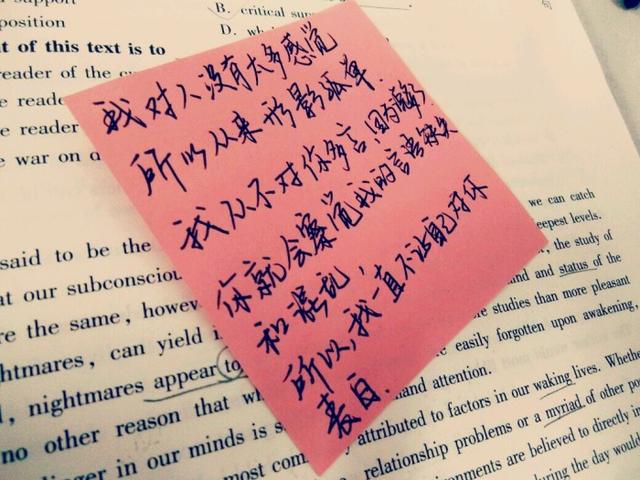 B. critical
position
D.
t of this text is to
reader of the
e reade
e reader
e war on
said to be the
at our subconsciou
re the same, howev
htmares, can yield
, nightmares appear to
no other reason that
inger in our minds is s
most com
我对人没有太多感觉
所以从来形影孤单.
我从不对你多言,因为
你就会察觉我的言语缺失
和混乱,
所以,我一直不让自己对你
表白.
we can catch
eepest levels.
, the study of
and status of the
e studies than more pleasant
easily forgotten upon awakening,
and attention.
attributed to factors in our waking lives. Whethe
relationship problems or a myriad of other po
ronments are believed to directly i
during the day would